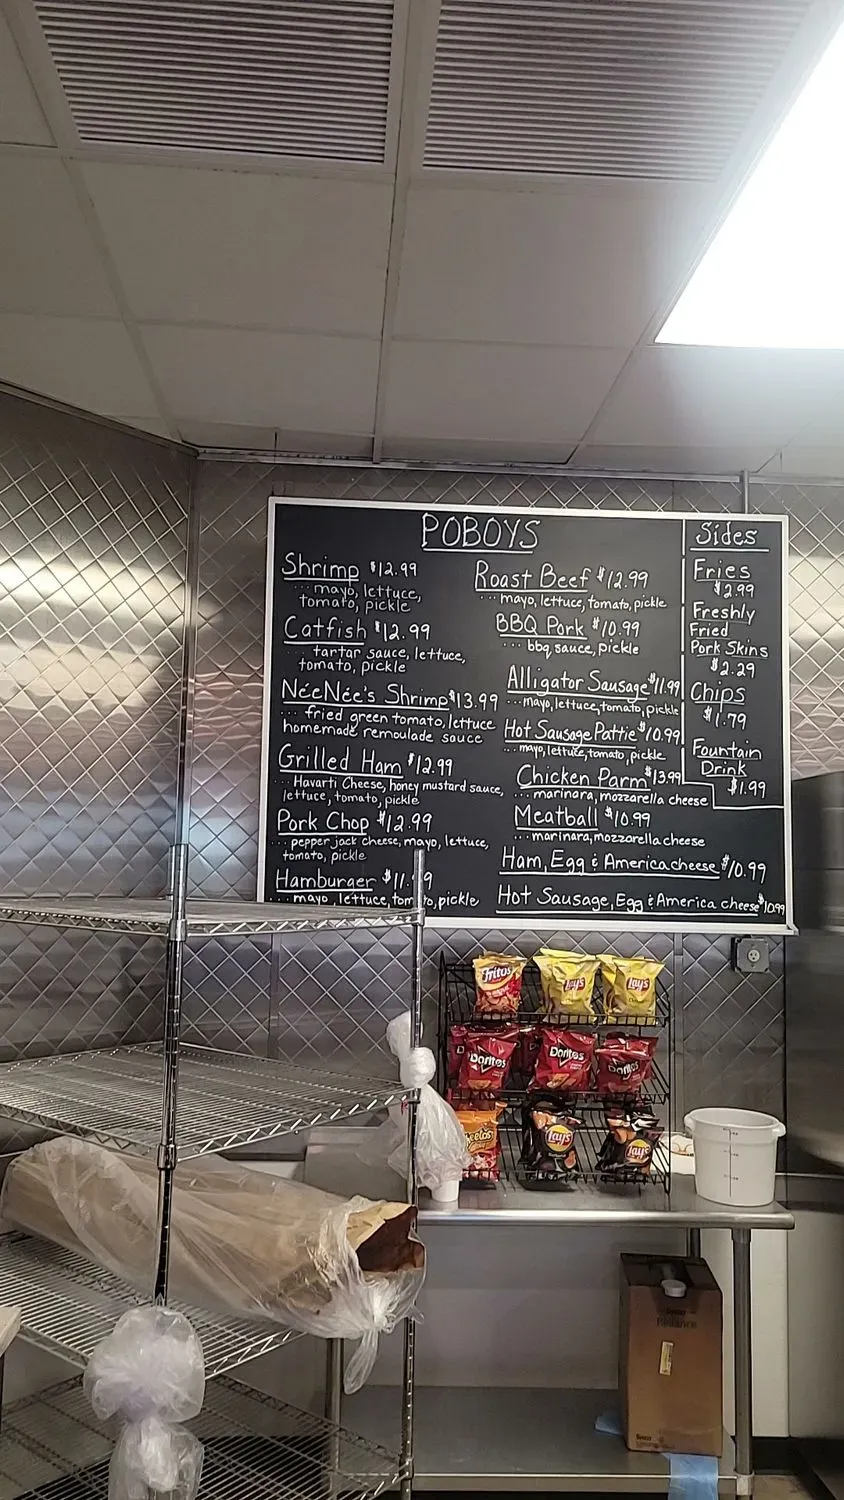 POBOYS
Shrimp $12.99
... mayo, lettuce,
tomato, pickle
Catfish $12.99
... tartar sauce, lettuce,
tomato, pickle
NéeNée's Shrimp $13.99
... fried green tomato, lettuce
homemade remoulade sauce
Grilled Ham $12.99
... Havarti Cheese, honey mustard sauce,
lettuce, tomato, pickle
Pork Chop $12.99
.... pepper jack cheese, mayo, lettuce,
tomato, pickle
Hamburger
.... mayo, lettuce, tomato, pickle
Roast Beef $12.99
... mayo, lettuce, tomato, pickle
BBQ Pork $10.99
... bbq sauce, pickle
Alligator Sausage $11.99
... mayo, lettuce, tomato, pickle
Hot Sausage Pattie $10.99
... mayo, lettuce, tomato, pickle
Chicken Parm $13.99
... marinara, mozzarella cheese
Meatball $10.99
... marinara, mozzarella cheese
Ham, Egg & America cheese $10.99
Hot Sausage, Egg & America cheese $10.99
Sides
Fries
$2.99
Freshly
Fried
Pork Skins
$2.29
Chips
$1.79
Fountain
Drink
$1.99
Fritos
Lay's
Lay's
Doritos
Doritos
Doritos
Lay's
Lay's
Reliance